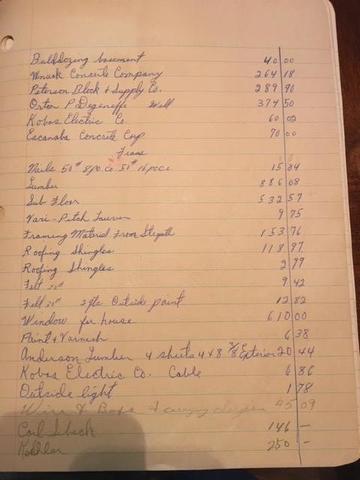 Bulldozing basement 40 00
Concrete Company 264 18
Peterson Block & Supply Co. 289 90
Orton P Degeneffe Well 374 50
Kobas Electric Co. 60 00
Escanaba Concrete Corp 70 00
Nails 50# 8 50# 16 15 84
Lumber 886 08
Sub Floor 532 57
Vari-Pitch Louver 9 75
Framing Material From 153 76
Roofing Shingles 118 97
Roofing Shingles 2 79
Felt 9 42
Felt 2 gls Outside paint 12 82
Window for house 610 00
Paint & Varnish 6 38
Anderson Lumber 4 sheets 4x8 3/8 Exterior 20 44
Kobas Electric Co. Cable 6 86
Outside light 1 78
Wire & 45 09
Carl 146 –
250 –